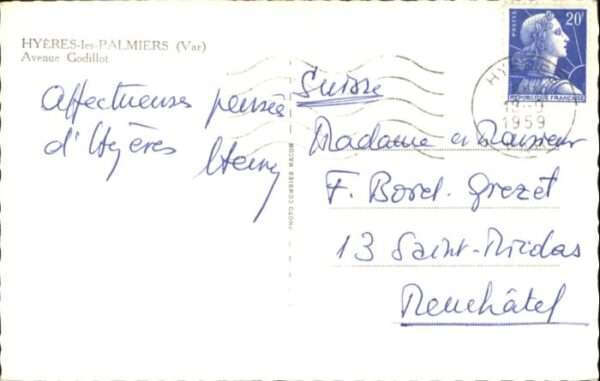 HYÈRES-les-PALMIERS (Var)
Avenue Godillot
Affectueuses pensées
d'Hyères Henry
PHOTO COMBIER MACON
POSTES
20F
REPUBLIQUE FRANÇAISE
1959
Suisse
Madame et Monsieur
F. Borel-Grezet
13 Saint-Nicolas
Neuchâtel